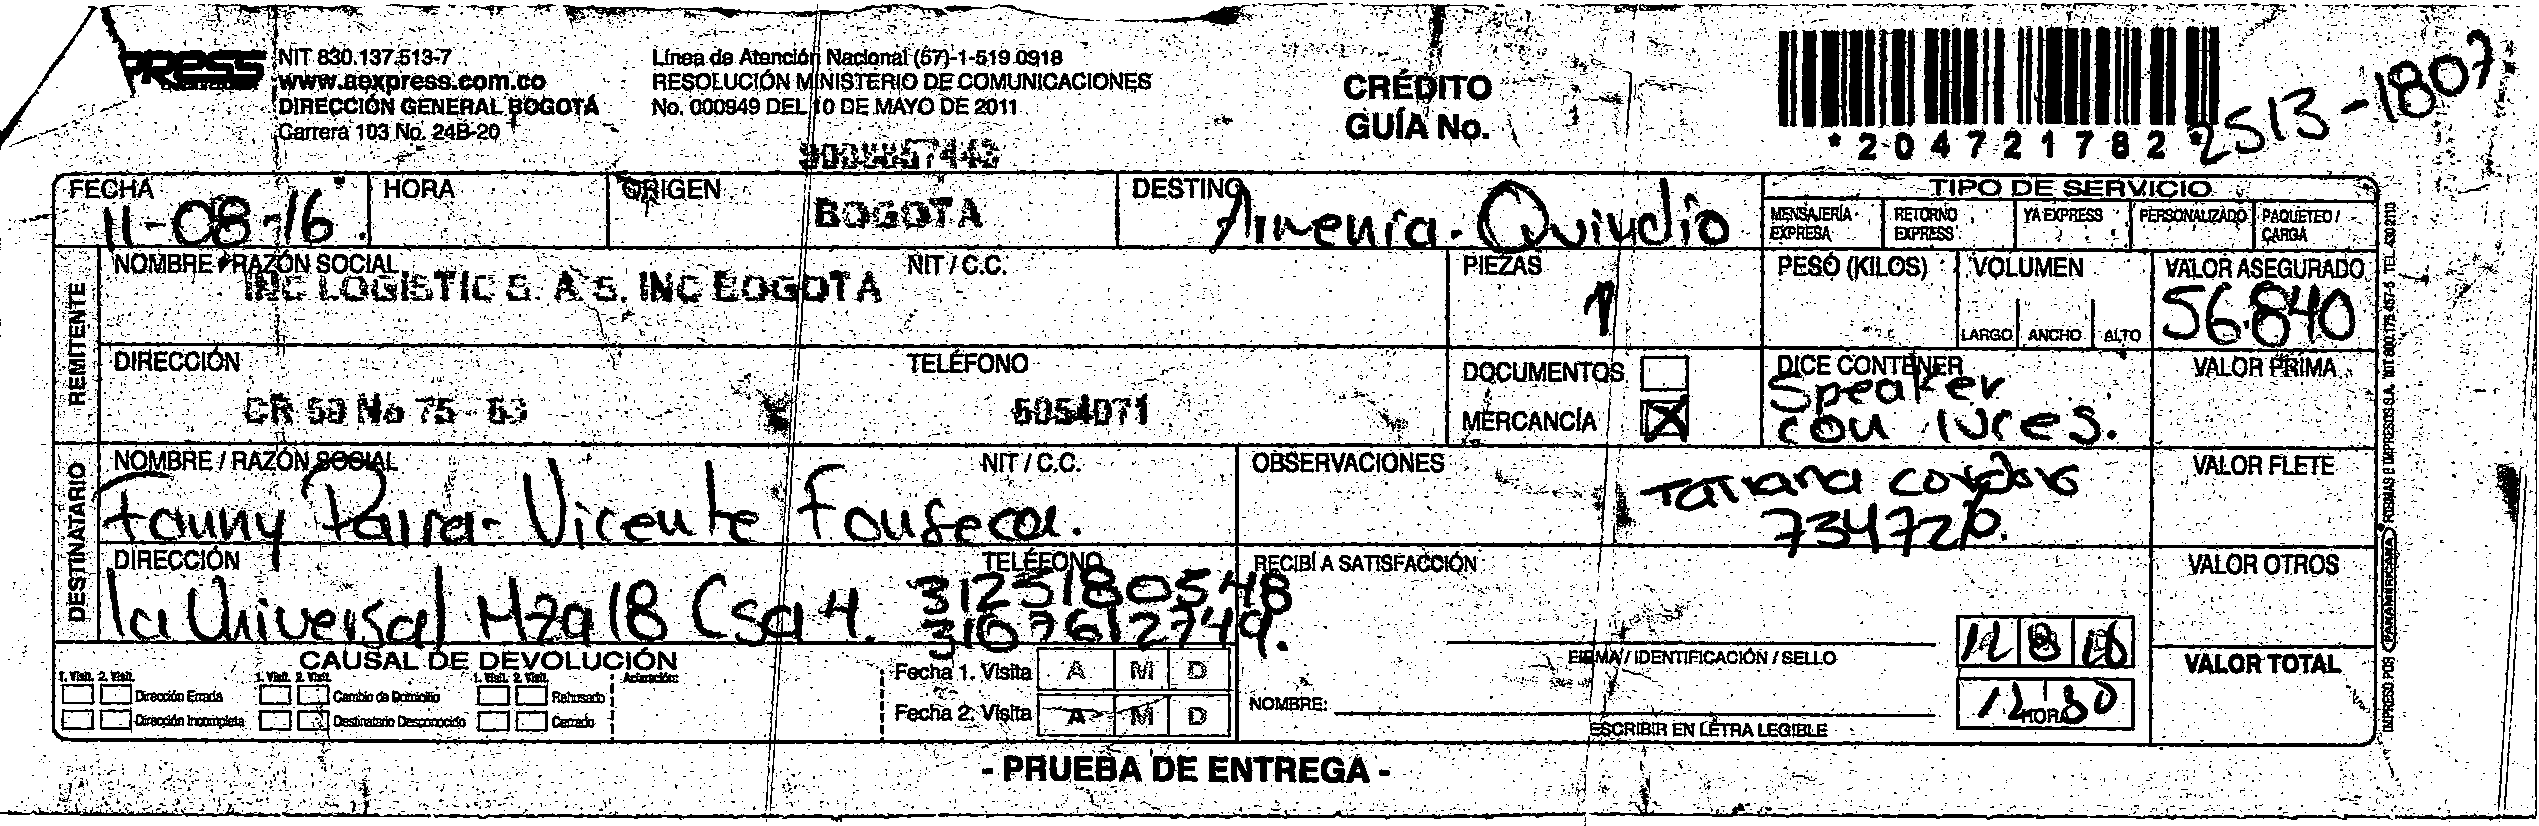 PRESS
NIT 830.137.513-7
www.aexpress.com.co
DIRECCIÓN GENERAL BOGOTÁ
Carrera 103 No. 24B-20
Línea de Atención Nacional (57)-1-519 0918
RESOLUCIÓN MINISTERIO DE COMUNICACIONES
No. 000949 DEL 10 DE MAYO DE 2011
CRÉDITO
GUÍA No.
*204721782*
2513-1807
FECHA 11-08-16
HORA
ORIGEN BOGOTA
DESTINO Armenia-Quindío
TIPO DE SERVICIO
MENSAJERÍA EXPRESA
RETORNO EXPRESS
YA EXPRESS
PERSONALIZADO
PAQUETEO / CARGA
REMITENTE
NOMBRE / RAZÓN SOCIAL
NIT / C.C.
INC LOGISTIC S. A S. INC BOGOTA
PIEZAS 1
PESO (KILOS)
VOLUMEN
LARGO ANCHO ALTO
VALOR ASEGURADO
56.840
DIRECCIÓN
TELÉFONO
CR 53 No 75 - 53
6054071
DOCUMENTOS
MERCANCÍA X
DICE CONTENER
Speaker
con luces.
VALOR PRIMA
DESTINATARIO
NOMBRE / RAZÓN SOCIAL
NIT / C.C.
Fanny Parra-Vicente Fonseca.
OBSERVACIONES
Tatiana Cordoba
VALOR FLETE
DIRECCIÓN
TELÉFONO
la Universal Mza 18 Csa 4.
3125180548
3107612749.
RECIBÍ A SATISFACCIÓN
FIRMA / IDENTIFICACIÓN / SELLO
12 8 16
12:30
HORA
NOMBRE:
ESCRIBIR EN LETRA LEGIBLE
VALOR OTROS
VALOR TOTAL
CAUSAL DE DEVOLUCIÓN
1. Visit. 2. Visit.
Dirección Errada
Dirección Incompleta
1. Visit. 2. Visit.
Cambio de Domicilio
Destinatario Desconocido
1. Visit. 2. Visit.
Rehusado
Cerrado
Aclaración:
Fecha 1. Visita A M D
Fecha 2. Visita A M D
- PRUEBA DE ENTREGA -
IMPRESO POR (PANAMERICANA) FORMAS E IMPRESOS S.A.